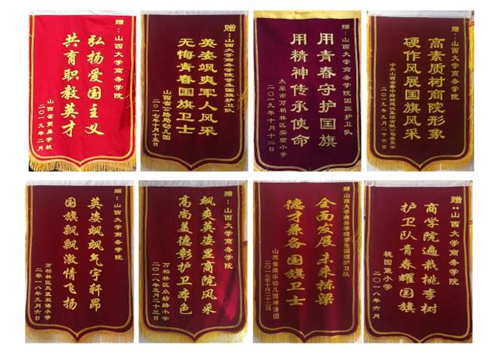 赠：山西大学商务学院
弘扬爱国主义
共育职教英才
山西省贸易学校
赠：山西大学商务学院国旗护卫队
英姿飒爽军人风采
无悔青春国旗卫士
赠：山西大学商务学院国旗护卫队
用青春守护国旗
用精神传承使命
太原市万柏林区实验小学
二〇一九年十月十二日
赠：山西大学商务学院
高素质树商院形象
硬作风展国旗风采
赠：山西大学商务学院
英姿飒飒气宇轩昂
国旗飘飘激情飞扬
赠：山西大学商务学院
飒爽英姿显商院风采
高尚美德彰护卫本色
全面发展未来栋梁
德才兼备国旗卫士
赠：山西大学商务学院
商学院遍栽桃李树
护卫队青春耀国旗
桃园里小学
二〇一八年六月